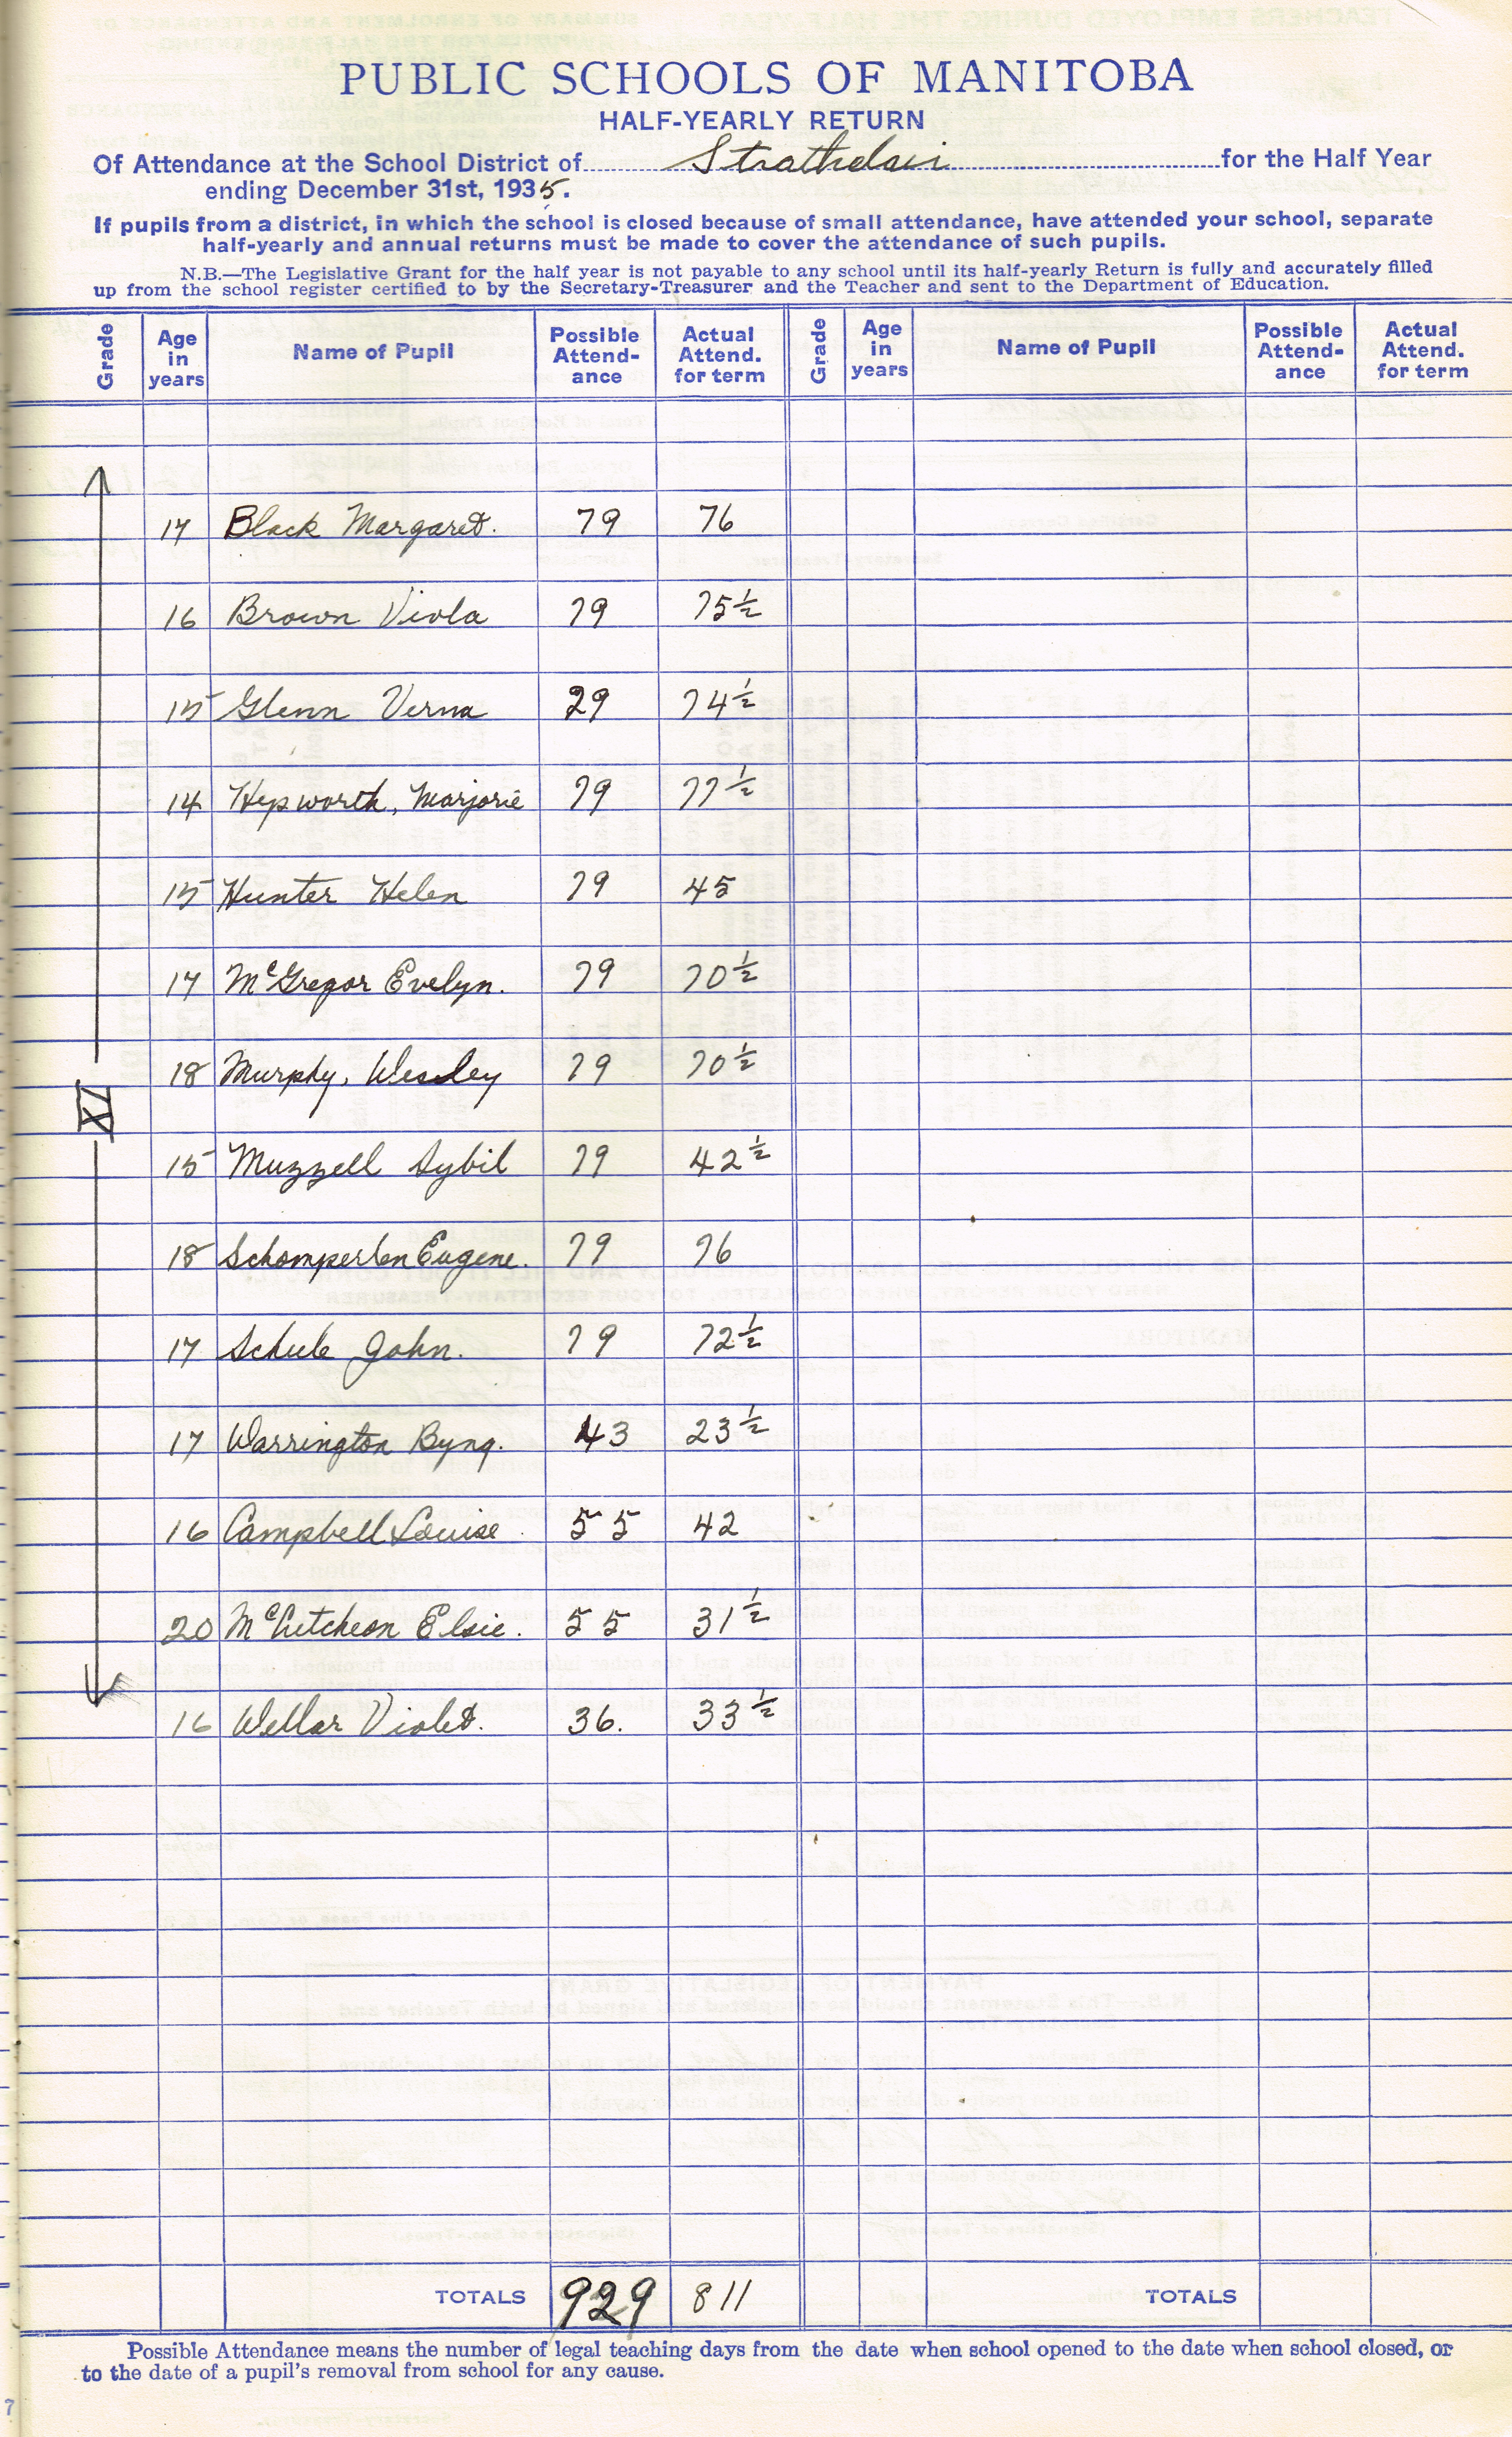 PUBLIC SCHOOLS OF MANITOBA
HALF-YEARLY RETURN
Of Attendance at the School District of Strathclair for the Half Year
ending December 31st, 1935.
If pupils from a district, in which the school is closed because of small attendance, have attended your school, separate
half-yearly and annual returns must be made to cover the attendance of such pupils.
N.B.—The Legislative Grant for the half year is not payable to any school until its half-yearly Return is fully and accurately filled
up from the school register certified to by the Secretary-Treasurer and the Teacher and sent to the Department of Education.
Grade Age in years Name of Pupil Possible Attend-ance Actual Attend. for term Grade Age in years Name of Pupil Possible Attend-ance Actual Attend. for term
17 Black Margaret. 79 76
16 Brown Viola 79 75½
15 Glenn Verna 79 74½
14 Hepworth, Marjorie 79 77½
15 Hunter Helen 79 45
17 McGregor Evelyn. 79 70½
18 Murphy, Wesley 79 70½
XI
15 Muzzell Sybil 79 42½
18 Schomperlen Eugene. 79 76
17 Schule John. 79 72½
17 Warrington Byng. 43 23½
16 Campbell Louise. 55 42
20 McCutcheon Elsie. 55 31½
16 Wellar Violet. 36. 33½
TOTALS 929 811 TOTALS
Possible Attendance means the number of legal teaching days from the date when school opened to the date when school closed, or
to the date of a pupil's removal from school for any cause.
7